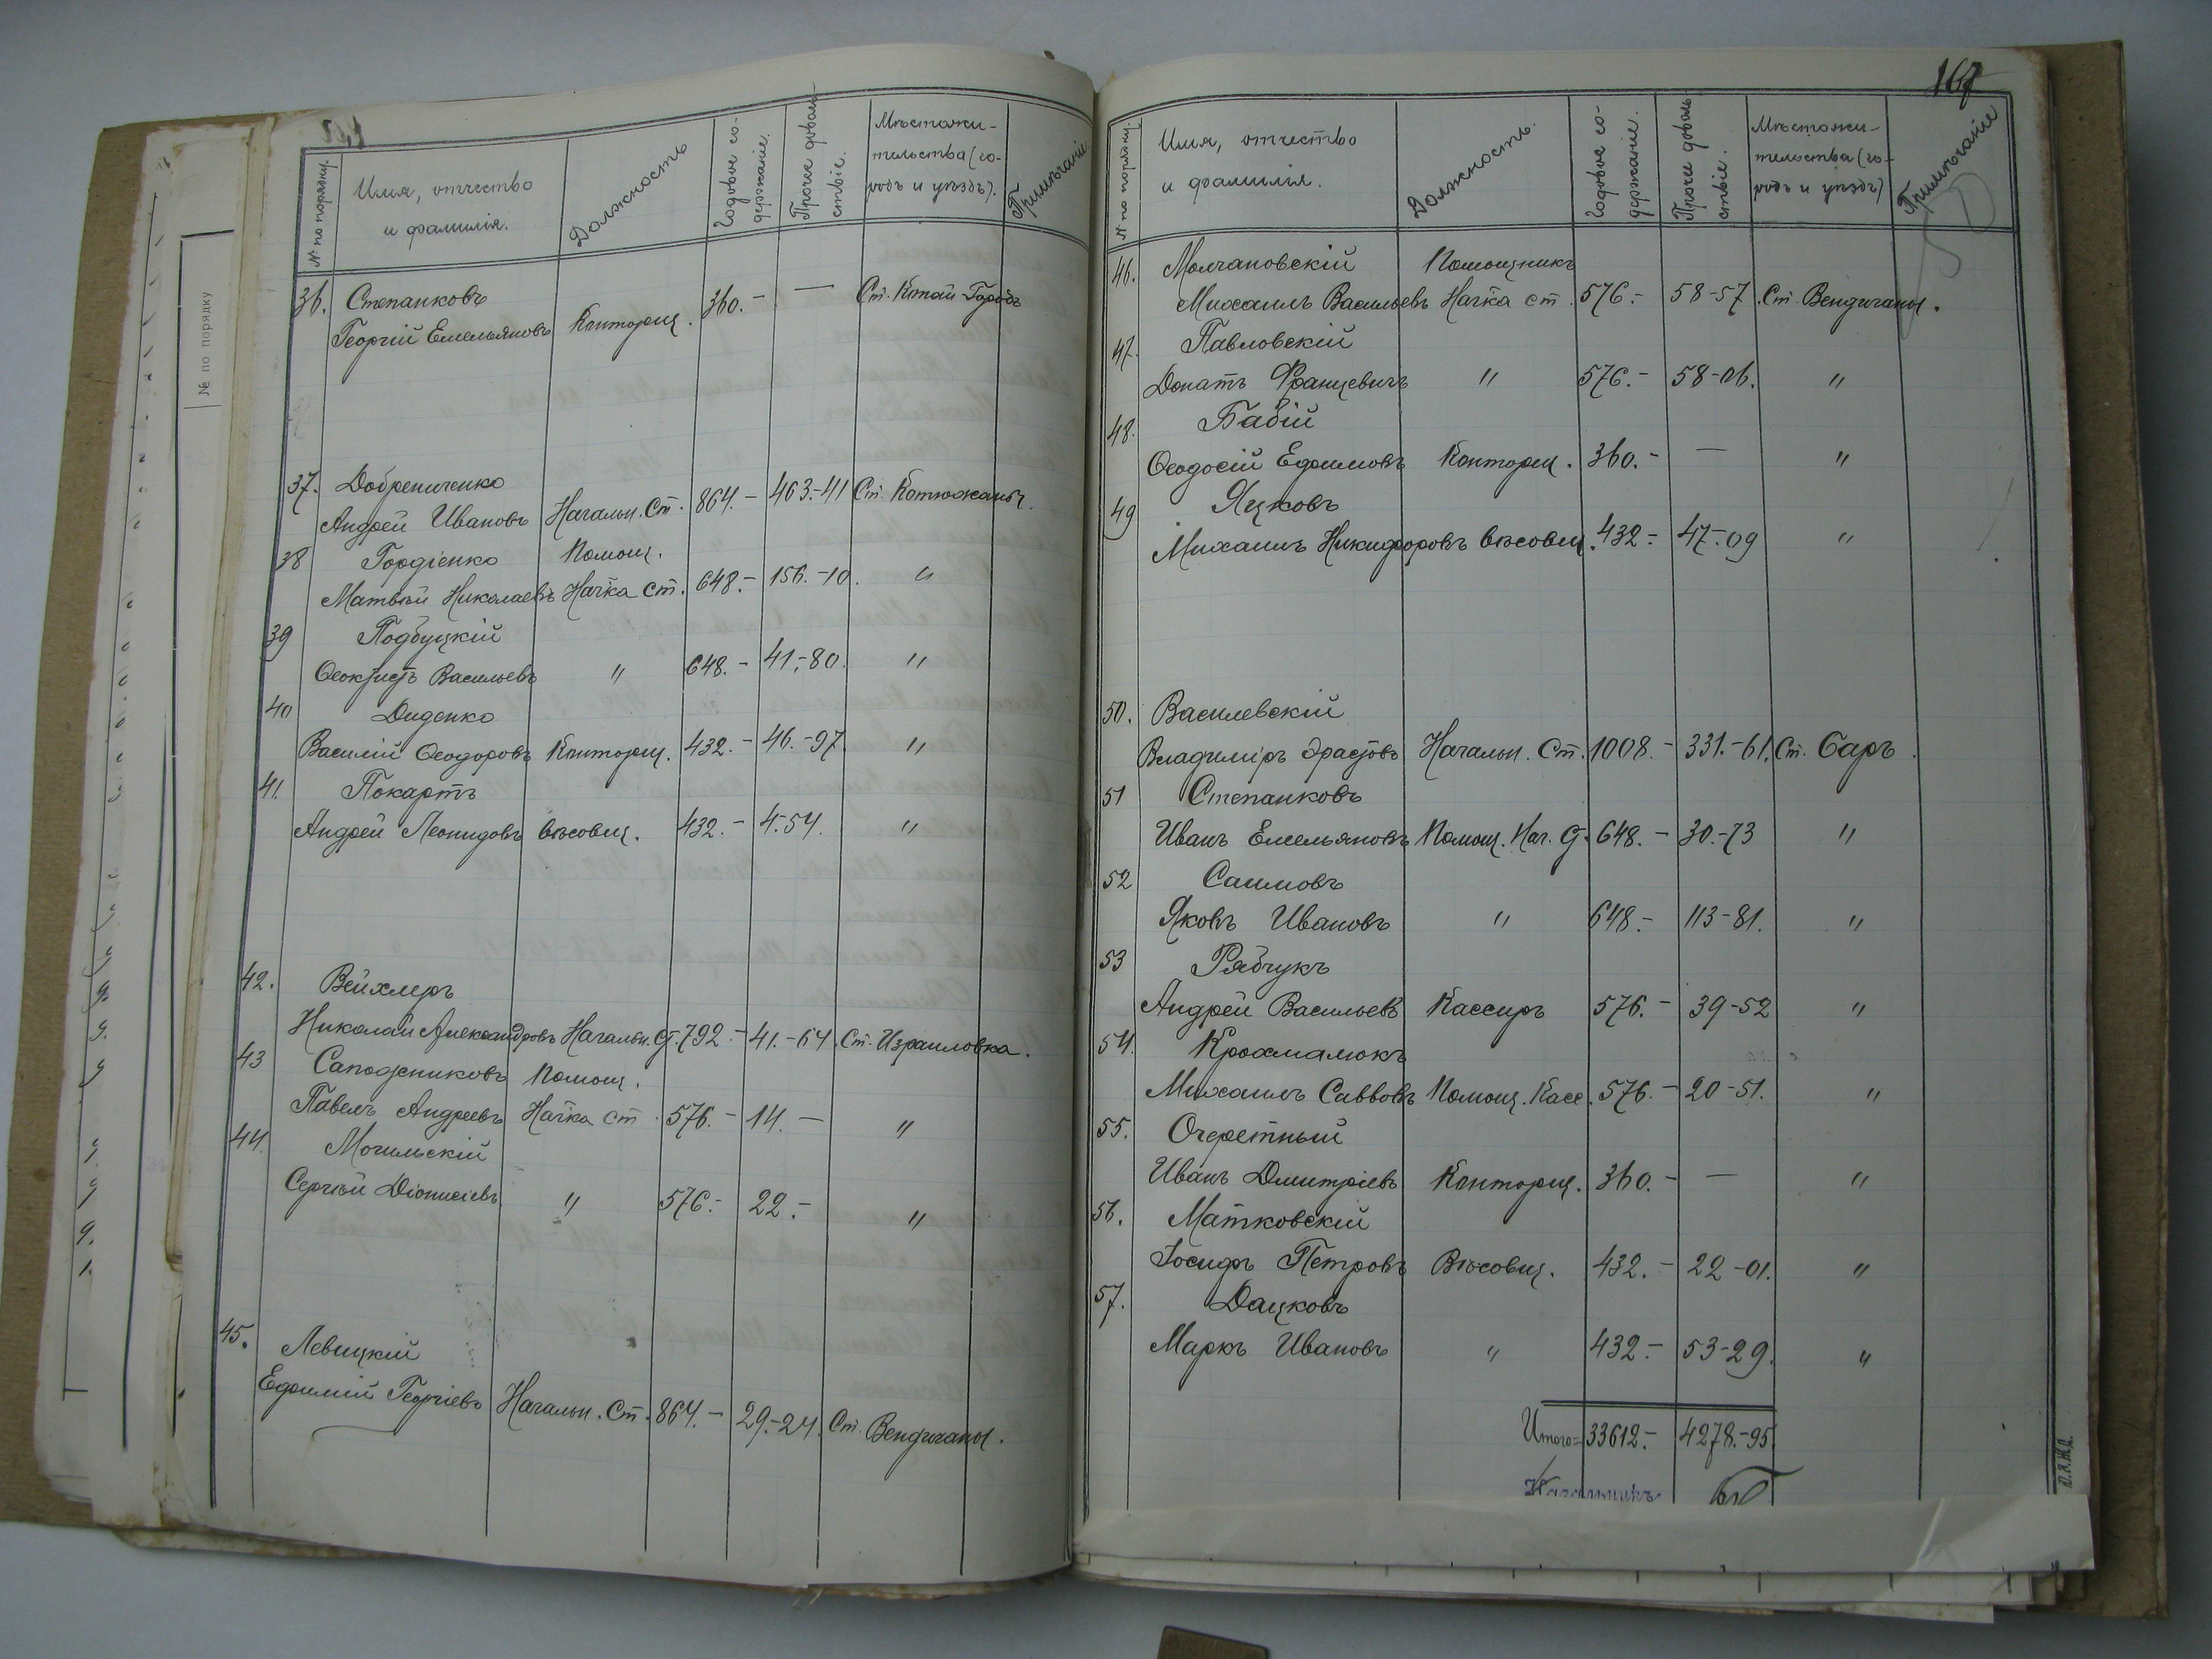 № по порядку
№ по порядку.
Имя, отчество
и фамилія.
Должность
Годовое со-
держаніе.
Прочее доволь-
ствіе.
Мѣстожи-
тельства (го-
родъ и уѣздъ).
Примѣчаніе
36. Степанковъ
Георгій Емельяновъ Конторщ. 360.- — Ст. Китай-Городъ
37. Добрениченко
Андрей Ивановъ Начальн. Ст. 864.- 463.-41 Ст. Котюжаны.
38 Гордіенко Помощ.
Матвѣй Николаевъ Нач-ка ст. 648.- 156.-10. "
39 Подбуцкій
Ѳеоктистъ Васильевъ " 648.- 41.-80. "
40 Диденко
Василій Ѳеодоровъ Конторщ. 432.- 46.-97. "
41. Покартъ
Андрей Леонидовъ вѣсовщ. 432.- 4.-54. "
42. Вейхлеръ
Николай Александровъ Начальн. ст. 792.- 41.-64. Ст. Израиловка.
43 Сапожниковъ Помощ.
Павелъ Андреевъ Нач-ка ст. 576.- 14.- "
44. Могильскій
Сергѣй Діонисіевъ " 576.- 22.- "
45. Левицкій
Ефимій Георгіевъ Начальн. Ст. 864.- 29.-24. Ст. Вендичаны.
167
№ по порядку.
Имя, отчество
и фамилія.
Должность.
Годовое со-
держаніе.
Прочее доволь-
ствіе.
Мѣстожи-
тельства (го-
родъ и уѣздъ)
Примѣчаніе
46. Молчановскій Помощникъ
Михаилъ Васильевъ Нач-ка ст. 576.- 58-57. Ст. Вендичаны.
47. Павловскій
Донатъ Францевичъ " 576.- 58-06. "
48. Бабій
Ѳеодосій Ефимовъ Конторщ. 360.- — "
49 Яцковъ
Михаилъ Никифоровъ вѣсовщ. 432.- 47.-09 "
50. Василевскій
Владиміръ Эрастовъ Начальн. Ст. 1008.- 331.-61. Ст. Баръ.
51 Степанковъ
Иванъ Емельяновъ Помощ. Нач. ст. 648.- 30.-73 "
52 Саимовъ
Яковъ Ивановъ " 648.- 113-81. "
53 Рябчукъ
Андрей Васильевъ Кассиръ 576.- 39-52 "
54. Крохмалюкъ
Михаилъ Саввовъ Помощ. Касс. 576.- 20-51. "
55. Очеретный
Иванъ Дмитріевъ Конторщ. 360.- — "
56. Матковскій
Іосифъ Петровъ Вѣсовщ. 432.- 22-01. "
57. Дацковъ
Маркъ Ивановъ " 432.- 53-29. "
Итого= 33612.- 4278.-95.
Начальникъ
Ю.З.Ж.Д.